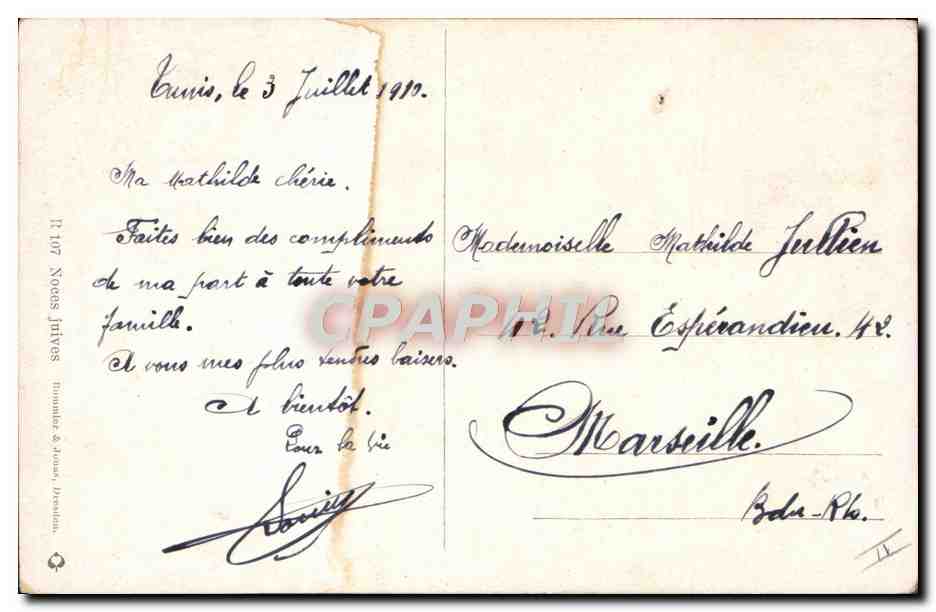 Tunis, le 3 Juillet 1910.
Ma Mathilde chérie.
Faites bien des compliments
de ma part à toute votre
famille.
A vous mes plus tendres baisers.
A bientôt.
Pour la vie
Mademoiselle Mathilde Jullien
42. Rue Espérandieu. 42.
Marseille.
Bdu-Rh.
R 107 Noces juives Rommler & Jonas, Dresden.
CPAPHIL